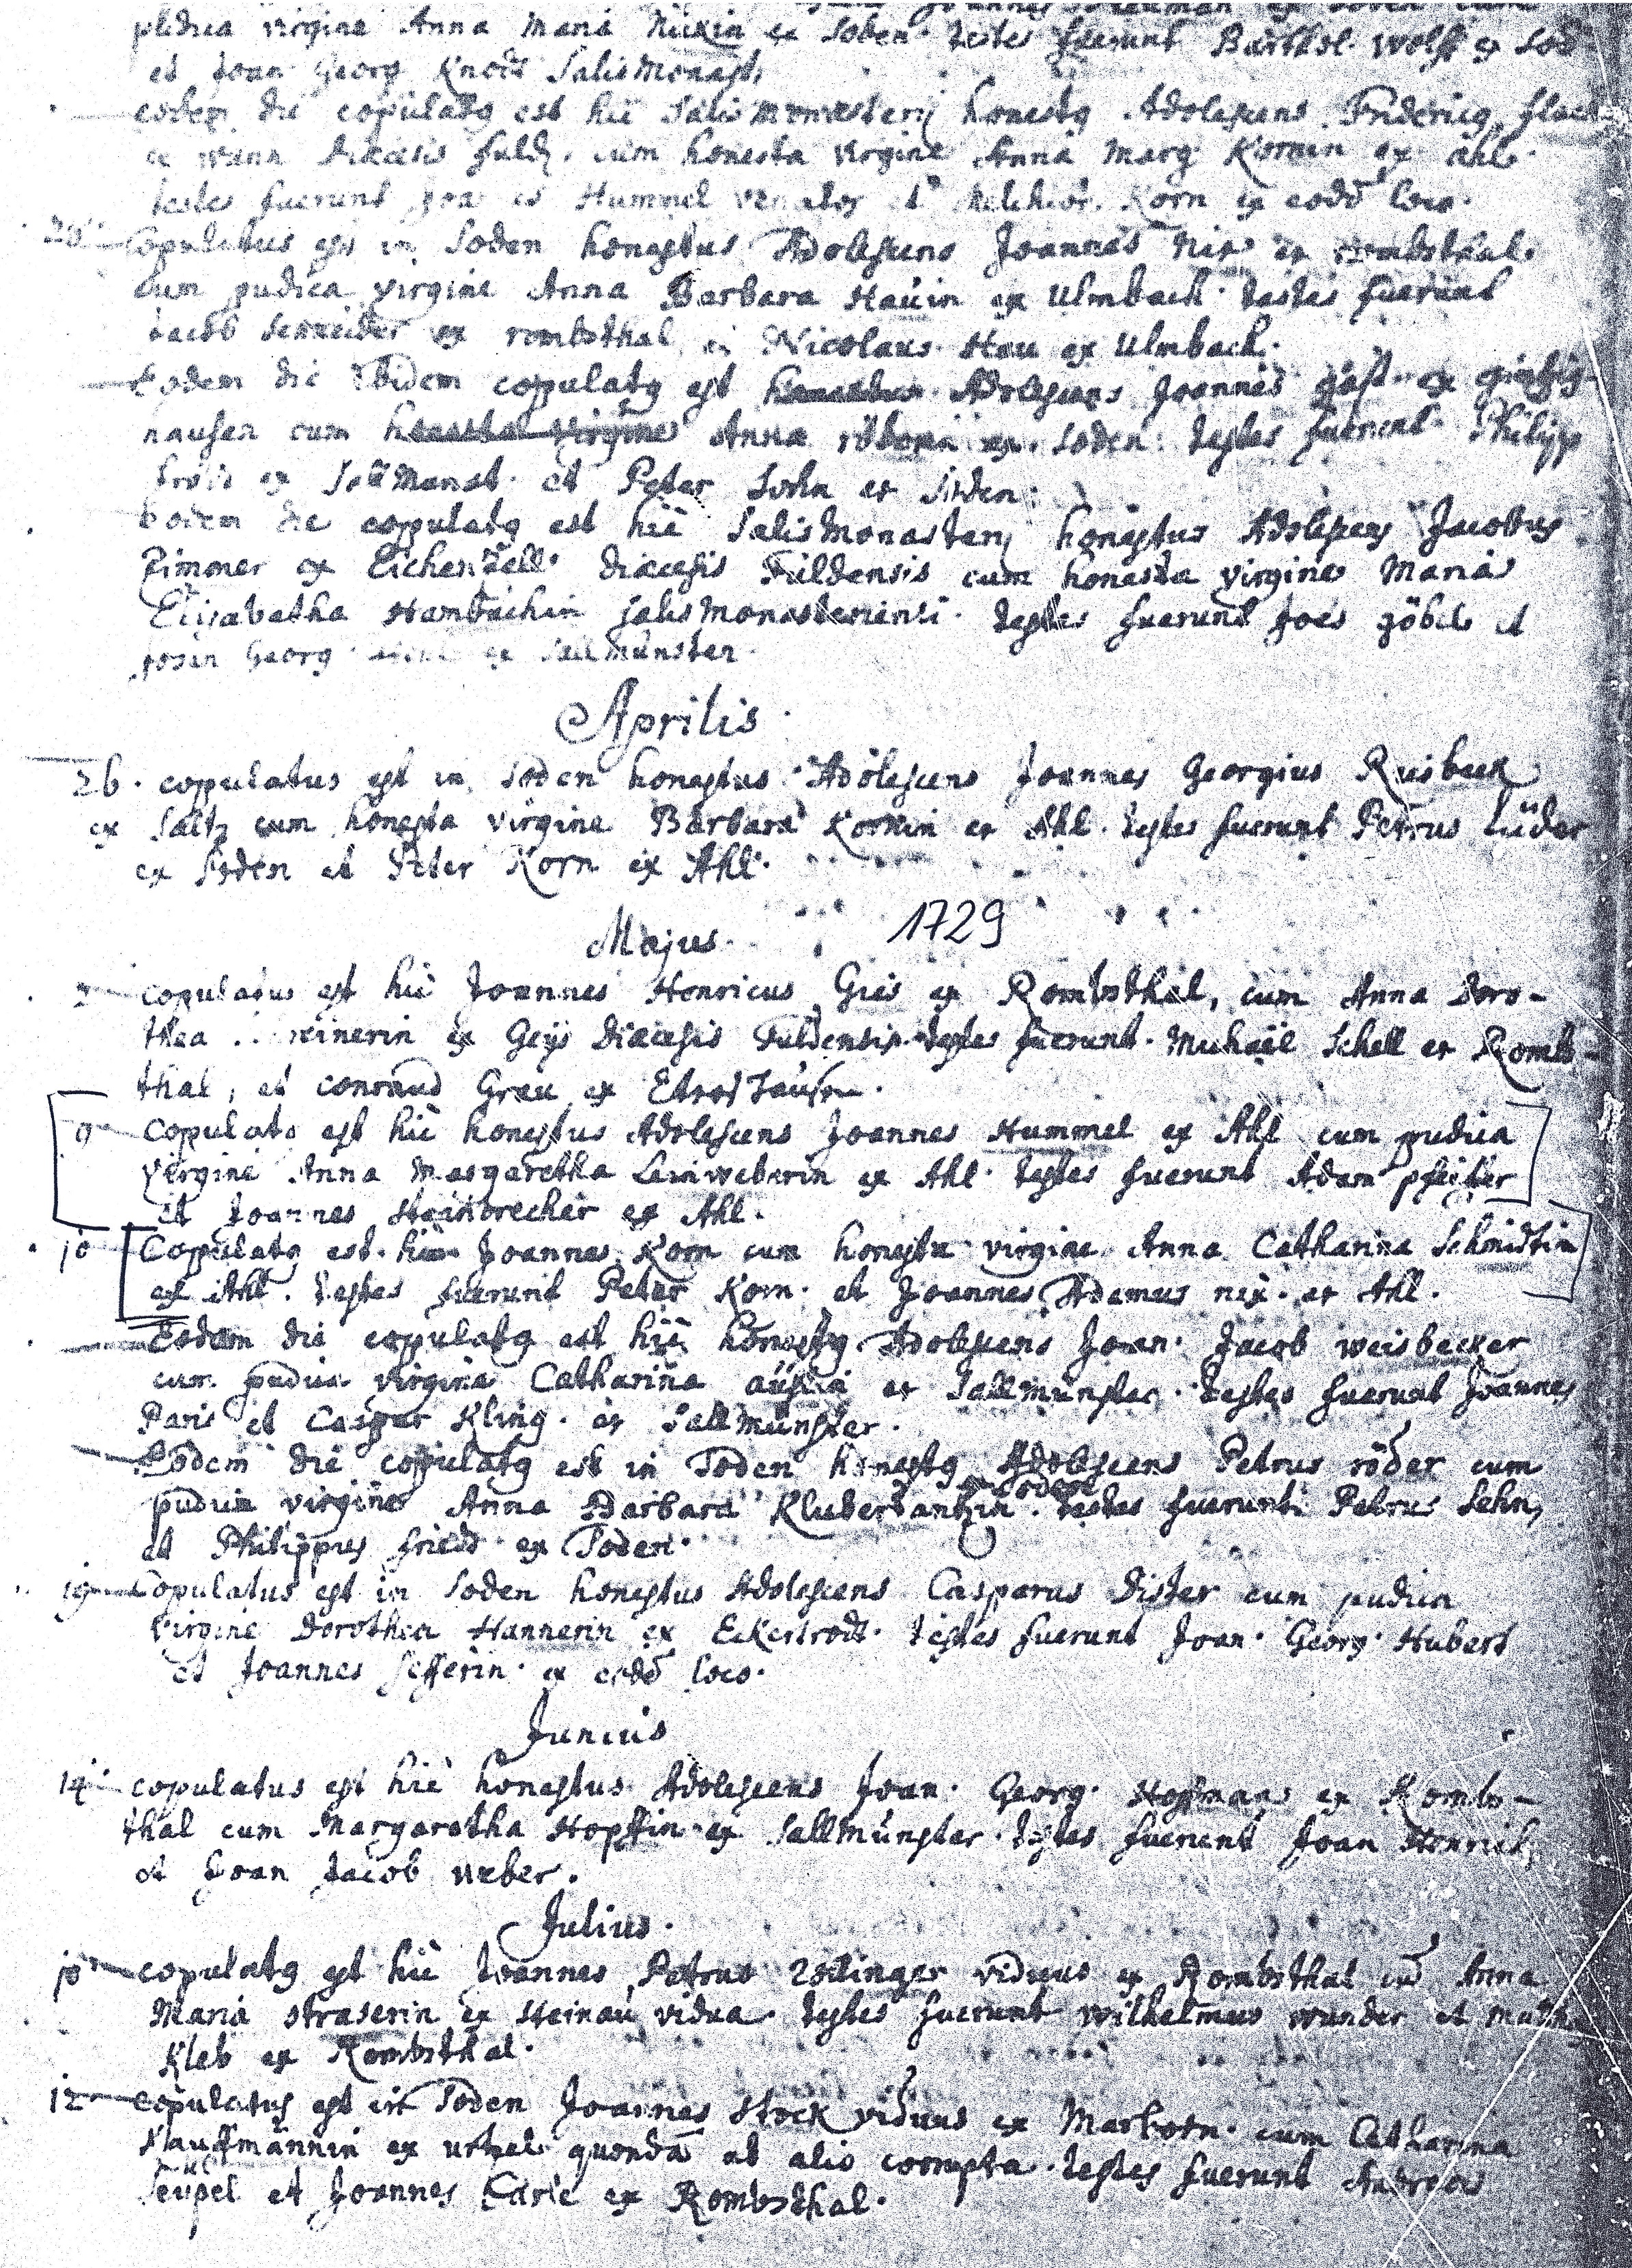 pudica virgine Anna Maria ex Soden testes fuerunt Barthol. Wolff ex Sod
et Joan Georg Knodt Salismonast,
eodem die copulatg est hic Salismonasterij honestg Adolescens Fridericg
ex diaecesis fuld. cum honesta virgine Anna Marg Kornin ex Ahl.
testes fuerunt Hummel venator et Melchior Korn ex eodē loco.
20 Copulatus est in Soden honestus Adolescens Joannes Nix ex rombsthal.
cum pudica virgine Anna Barbara Hauin ex Ulmbach. testes fuerunt
Jacob Schneider ex rombsthal et Nicolaus Hau ex Ulmbach.
Eodem die Ibidem copulatg est honestus Adolescens Joannes ex
hausen cum honesta virgine Anna ex Soden. testes fuerunt Philipp
ex Sallmonst. et Peter ex Soden.
Eodem die coppulatg est hic Salismonasterij honestus Adolescens Jacobus
Zimmer ex Eichenzell. Diaecesis Fuldensis cum honesta virgine Maria
Elisabetha Hambachin salismonasteriensi. testes fuerunt Joēs göbel et
Joan Georg ex Sallmünster.
Aprilis.
26. coppulatus est in Soden honestus Adolescens Joannes Georgius Rusbeck
ex Saltz cum honesta virgine Barbara Kornin ex Ahl. testes fuerunt Petrus Lüder
ex Soden et Peter Korn ex Ahl.
Majus. 1729
copulatus est hic Joannes Henricus Gies ex Rombsthal, cum Anna Doro-
thea ex Geijs Diaecesis Fuldensis. testes fuerunt. Michaël Schell ex Rombs-
thal, et conraud Grau ex
9 Copulatg est hic honestus Adolescens Joannes Hummel ex Ahl cum pudica
virgine Anna Margaretha Leinweberin ex Ahl. testes fuerunt Adam pfeifer
et Joannes Steinbrecher ex Ahl.
10 Copulatg est hic Joannes Korn cum honesta virgine Anna Catharina Schmidtin
ex Ahl. testes fuerunt Peter Korn. et Joannes Adamus nix. ex Ahl.
Eodem die copulatg est hic honestg Adolescens Joan. Jacob weisbecker
cum pudica virgine Catharina ex Sallmünster. testes fuerunt Joannes
Paris et Caspar Kling. ex Sallmünster.
Eodem die copulatg est in Soden honestg Adolescens Petrus röder cum
pudica virgine Anna Barbara ex Soden. testes fuerunt Petrus Sehn,
et Philippus ex Soden.
19 Copulatus est in Soden honestus Adolescens Casparus Dister cum pudica
Virgine Dorothea Hannerin ex Eckertrodt. testes fuerunt Joan. Georg. Hubert
et Joannes ex eodē loco.
Junius
14. copulatus est hic honestus Adolescens Joan. Georg. Hoffmann ex Rombs-
thal cum Margaretha Hopffin ex Sallmünster. testes fuerunt Joan Henrich,
et Joan Jacob weber.
Julius.
10 copulatg est hic Joannes Petrus Zeilinger viduus ex Rombsthal cū Anna
Maria straserin ex Steinau vidua. testes fuerunt Wilhelmus wunder et
Kleb ex Rombsthal.
12 copulatus est in Soden Joannes Stock viduus ex Marborn. cum Catharina
Kauffmännin ex quondā ab alio corrupta. testes fuerunt Andreas
et Joannes ex Rombsthal.